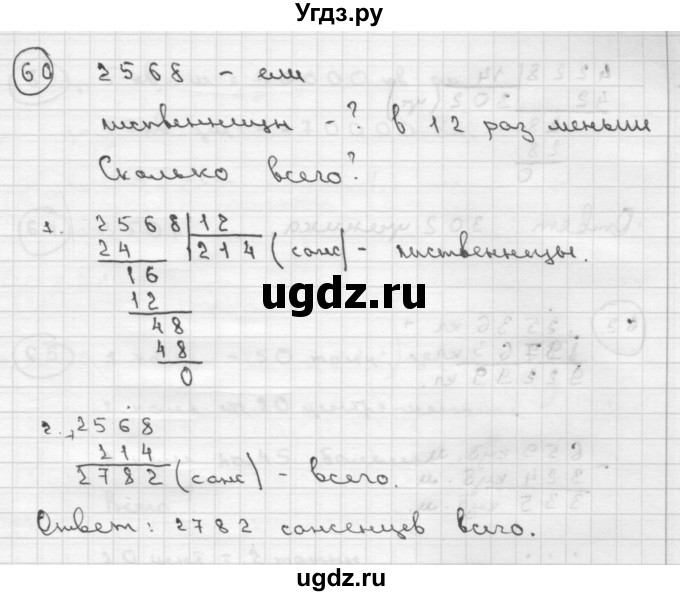 Угдз.ру
60 2568 - ели
лиственницы - ? в 12 раз меньше
Сколько всего?
1. 2568 | 12
24 214 (саж) - лиственницы.
16
12
48
48
0
ugdz.ru
2. 2568
+ 214
2782 (саж) - всего.
Ответ: 2782 саженцев всего.
ugdz.ru